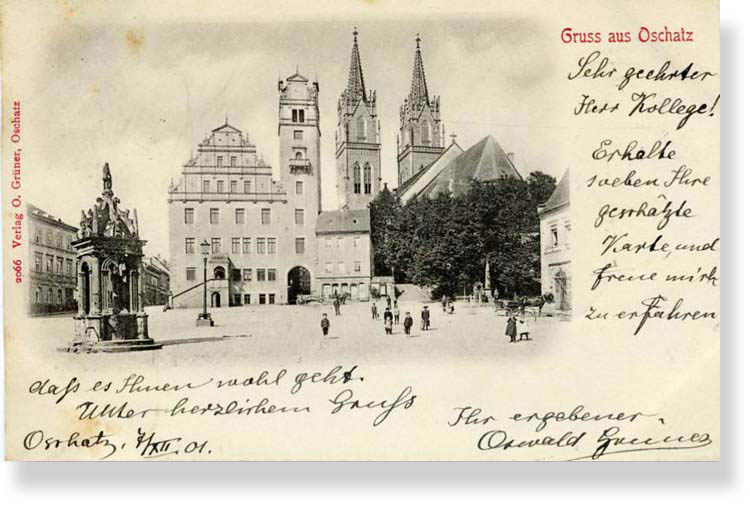 Gruss aus Oschatz
Sehr geehrter
Herr Kollege!
Erhalte
soeben Ihre
geschätzte
Karte, und
freue mich
zu erfahren
daß es Ihnen wohl geht.
Unter herzlichem Gruß
Ihr ergebener
Oswald
Oschatz, 7/XII. 01.
2066 Verlag O. Grüner, Oschatz